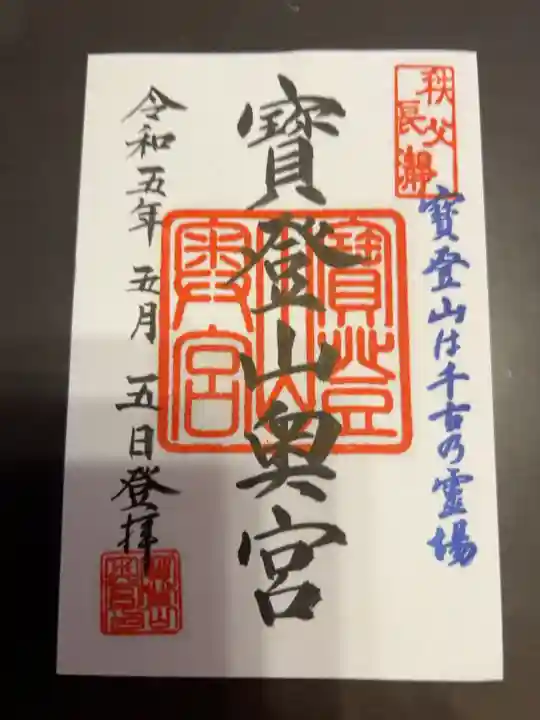 秩父
長瀞
寶登山は千古乃霊場
寶登山奥宮
寶登山奥宮
令和五年 五月 五日登拝